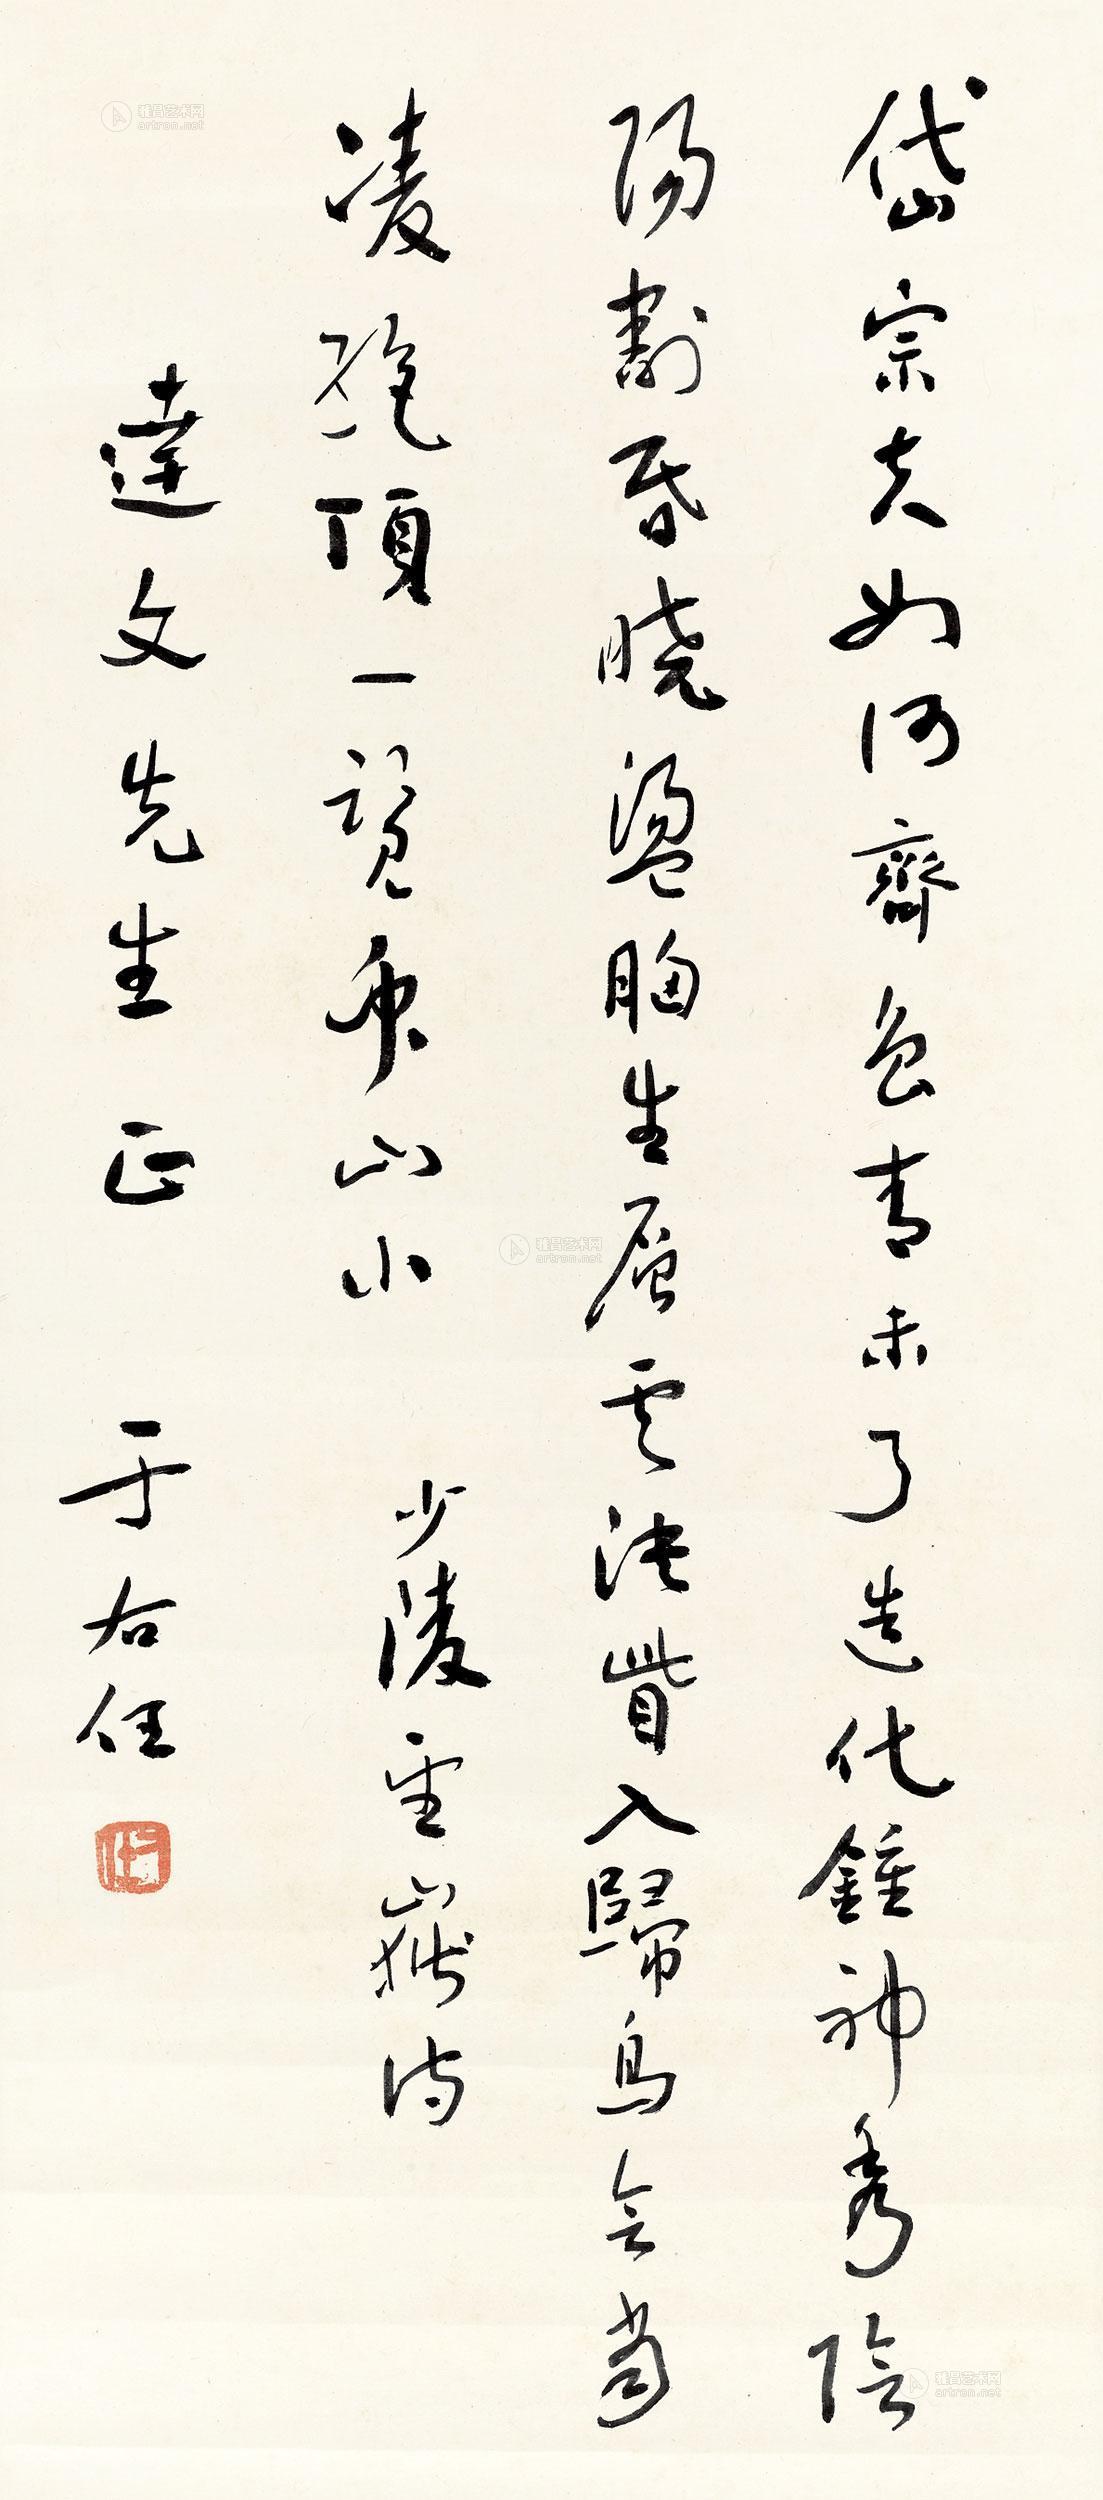 岱宗夫如何齊魯青未了造化鍾神秀陰
陽割昏曉盪胸生層雲決眥入歸鳥會當
凌絕頂一覽眾山小 少陵望嶽詩
達文先生正 于右任
右任
雅昌艺术网
artron.net
雅昌艺术网
artron.net
雅昌艺术网
artron.net